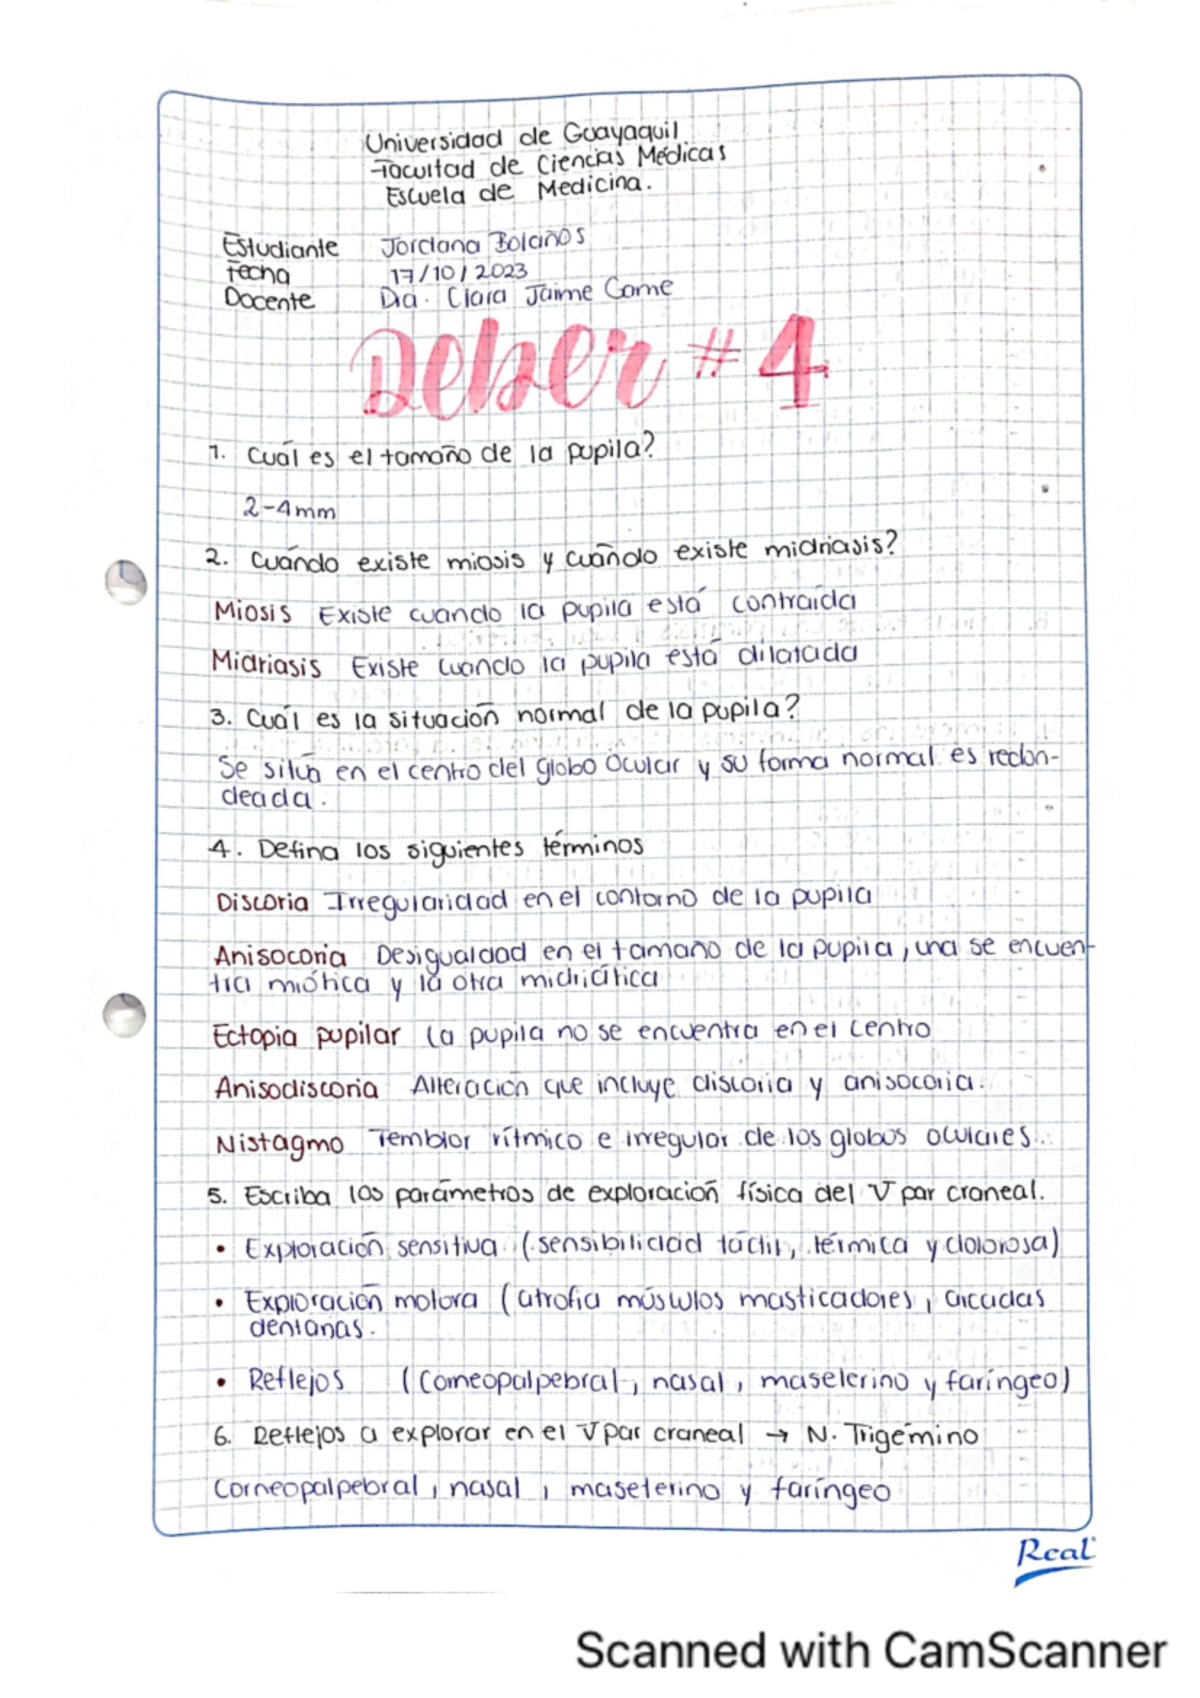 Universidad de Guayaquil
Facultad de Ciencias Médicas
Escuela de Medicina.
Estudiante Jordana Bolaños
Fecha 17/10/2023
Docente Dra. Clara Jaime Game
Deber #4
1. Cuál es el tamaño de la pupila?
2-4mm
2. Cuándo existe miosis y cuándo existe midriasis?
Miosis Existe cuando la pupila está contraída
Midriasis Existe cuando la pupila está dilatada
3. Cuál es la situación normal de la pupila?
Se sitúa en el centro del globo ocular y su forma normal es redon-
deada.
4. Defina los siguientes términos
Discoria Irregularidad en el contorno de la pupila
Anisocoria Desigualdad en el tamaño de la pupila, una se encuen-
tra miótica y la otra midriática
Ectopia pupilar La pupila no se encuentra en el centro
Anisodiscoria Alteración que incluye discoria y anisocoria.
Nistagmo Temblor rítmico e irregular de los globos oculares.
5. Escriba los parámetros de exploración física del V par craneal.
• Exploración sensitiva (sensibilidad táctil, térmica y dolorosa)
• Exploración motora (atrofia músculos masticadores, arcadas
dentarias.
• Reflejos (Corneopalpebral, nasal, maseterino y faríngeo)
6. Reflejos a explorar en el V par craneal → N. Trigémino
Corneopalpebral, nasal, maseterino y faríngeo
Real
Scanned with CamScanner